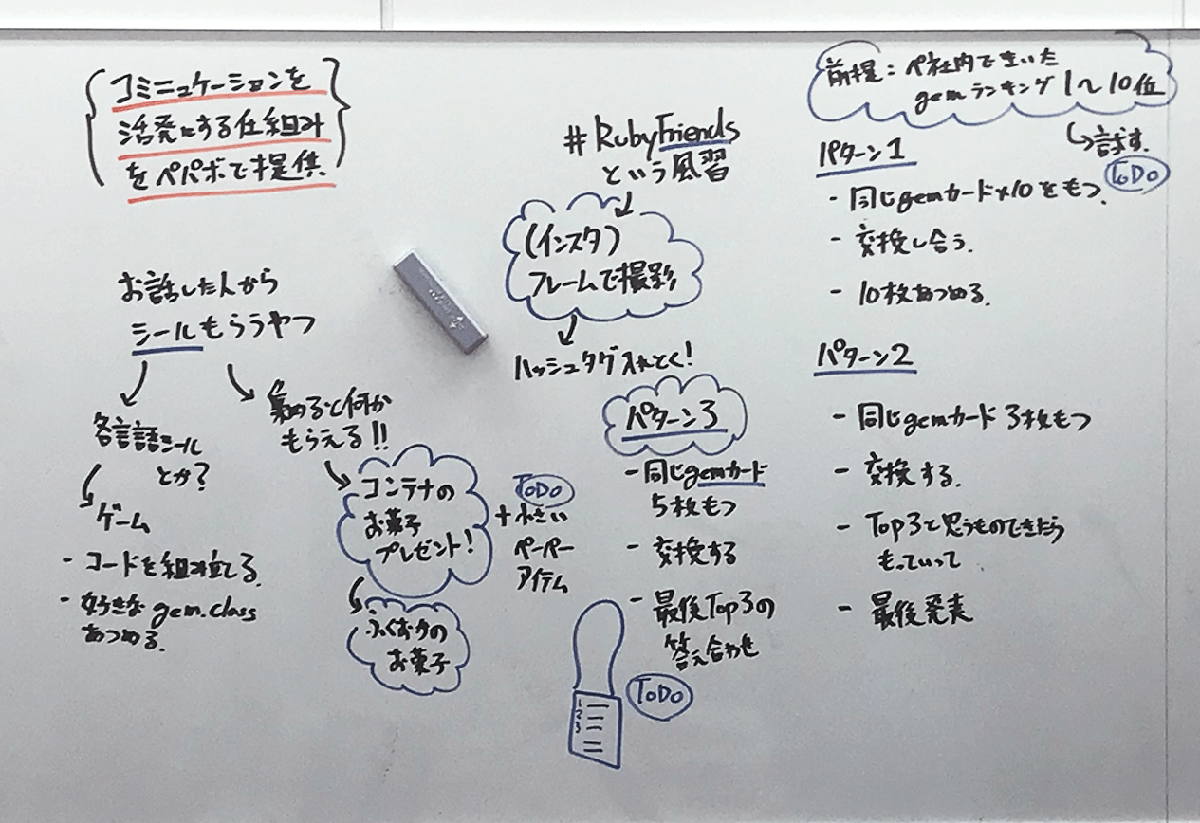 コミニュケーションを
活発にする仕組み
をペパボで提供
お話した人から
シールもらうやつ
各言語シール
とか?
ゲーム
- コードを組み立てる.
- 好きな gem.class
あつめる.
集めると何か
もらえる!!
コンテナの
お菓子
プレゼント!
ふくおかの
お菓子
ToDo
+ 小さい
ペーパー
アイテム
#RubyFriends
という風習
(インスタ)
フレームで撮影
ハッシュタグ入れとく!
パターン3
- 同じgemカード
5枚もつ
- 交換する
- 最後Top3の
答え合わせ
ToDo
1
2
3
前提:ペ社内で
gemランキング 1〜10位
→話す.
ToDo
パターン1
- 同じgemカード×10をもつ.
- 交換し合う.
- 10枚あつめる.
パターン2
- 同じgemカード 3枚もつ
- 交換する.
- Top3と思うものできたら
もっていって
- 最後発表